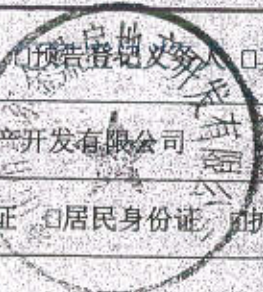 □预告登记义务人 □
产开发有限公司
证 □居民身份证
房地产开发有限公